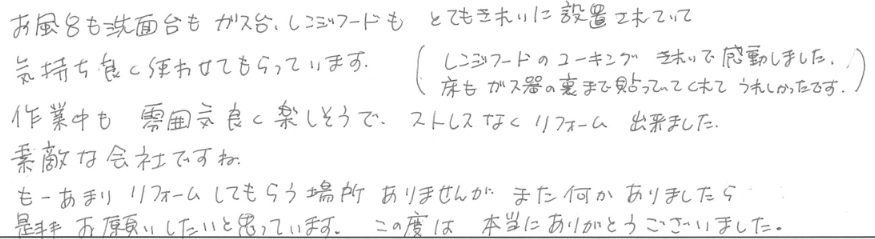 お風呂も洗面台も ガス台、レンジフードも とてもきれいに設置されていて
気持ち良く使わせてもらっています。
(レンジフードのコーキング きれいで感動しました。
床もガス器の裏まで貼っていてくれて うれしかったです。)
作業中も 雰囲気良く楽しそうで、ストレスなくリフォーム 出来ました。
素敵な会社ですね。
もーあまり リフォームしてもらう場所 ありませんが また何かありましたら
是非 お願いしたいと思っています。 この度は 本当にありがとうございました。